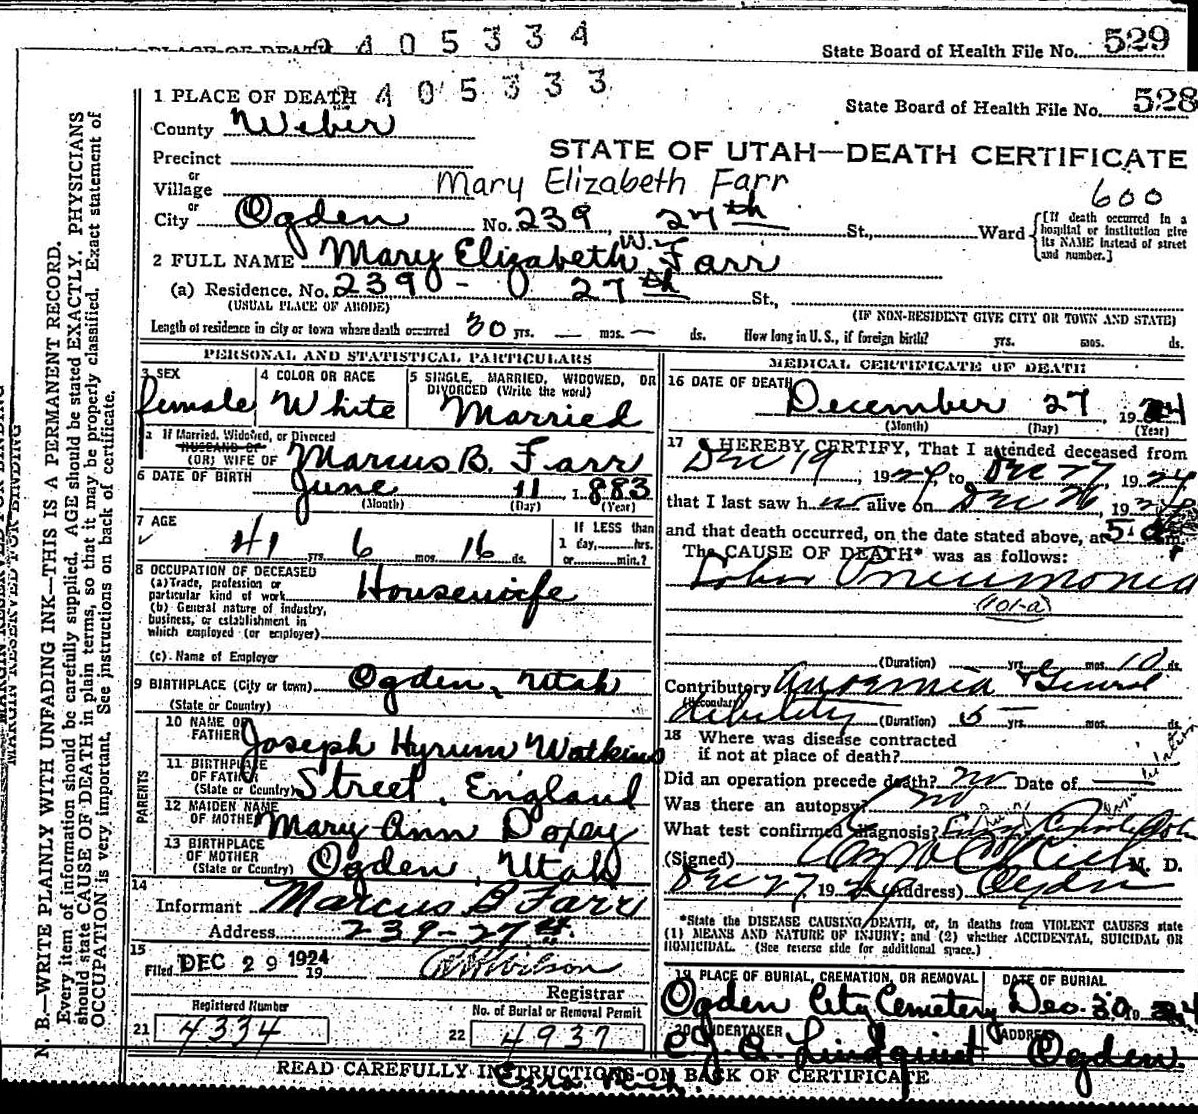 PLACE OF DEATH 2405334
State Board of Health File No. 529
2405333
1 PLACE OF DEATH
State Board of Health File No. 528
County Weber
STATE OF UTAH—DEATH CERTIFICATE
Precinct
or
Village
Mary Elizabeth Farr
600
or
City Ogden No. 239 27th St., Ward
[If death occurred in a hospital or institution give its NAME instead of street and number.]
2 FULL NAME Mary Elizabeth W. Farr
(a) Residence. No. 2390 - 27th St.,
(USUAL PLACE OF ABODE)
(IF NON-RESIDENT GIVE CITY OR TOWN AND STATE)
Length of residence in city or town where death occurred 30 yrs. — mos. — ds. How long in U. S., if foreign birth? yrs. mos. ds.
PERSONAL AND STATISTICAL PARTICULARS
3 SEX
female
4 COLOR OR RACE
White
5 SINGLE, MARRIED, WIDOWED, OR
DIVORCED (Write the word)
Married
a If Married, Widowed, or Divorced
HUSBAND OF
(OR) WIFE OF Marcus B. Farr
6 DATE OF BIRTH June 11 1883
(Month) (Day) (Year)
7 AGE
41 yrs. 6 mos. 16 ds.
If LESS than
1 day, hrs.
or min.?
8 OCCUPATION OF DECEASED
(a) Trade, profession or
particular kind of work Housewife
(b) General nature of industry,
business, or establishment in
which employed (or employer)
(c) Name of Employer
9 BIRTHPLACE (City or town) Ogden, Utah
(State or Country)
PARENTS
10 NAME OF
FATHER Joseph Hyrum Watkins
11 BIRTHPLACE
OF FATHER
(State or Country) Street, England
12 MAIDEN NAME
OF MOTHER Mary Ann Doxey
13 BIRTHPLACE
OF MOTHER
(State or Country) Ogden, Utah
14
Informant Marcus B Farr
Address 239-27th
15
Filed DEC 29 1924 19
Wilson
Registrar
Registered Number
21 4334
No. of Burial or Removal Permit
22 4937
MEDICAL CERTIFICATE OF DEATH
16 DATE OF DEATH
December 27, 1924
(Month) (Day) (Year)
17 I HEREBY CERTIFY, That I attended deceased from
Dec 19, 1924, to Dec 27, 1924
that I last saw h alive on Dec 26, 1924
and that death occurred, on the date stated above, at 5 a m.
The CAUSE OF DEATH* was as follows:
Lobar Pneumonia
(101-a)
(Duration) yrs. mos. 10 ds.
Contributory Anaemia & General
(Secondary)
debility (Duration) 5 yrs. — mos. ds.
18 Where was disease contracted
if not at place of death?
Did an operation precede death? no Date of
Was there an autopsy? no
What test confirmed diagnosis?
(Signed) M. D.
Dec 27 1924 (Address) Ogden
*State the DISEASE CAUSING DEATH, or, in deaths from VIOLENT CAUSES state
(1) MEANS AND NATURE OF INJURY; and (2) whether ACCIDENTAL, SUICIDAL OR
HOMICIDAL. (See reverse side for additional space.)
19 PLACE OF BURIAL, CREMATION, OR REMOVAL
Ogden City Cemetery
DATE OF BURIAL
Dec. 30 1924
20 UNDERTAKER
Lindquist
ADDRESS
Ogden.
READ CAREFULLY INSTRUCTIONS ON BACK OF CERTIFICATE
MARGIN RESERVED FOR BINDING
N. B.—WRITE PLAINLY WITH UNFADING INK—THIS IS A PERMANENT RECORD.
Every item of information should be carefully supplied. AGE should be stated EXACTLY. PHYSICIANS
should state CAUSE OF DEATH in plain terms, so that it may be properly classified. Exact statement of
OCCUPATION is very important. See instructions on back of certificate.